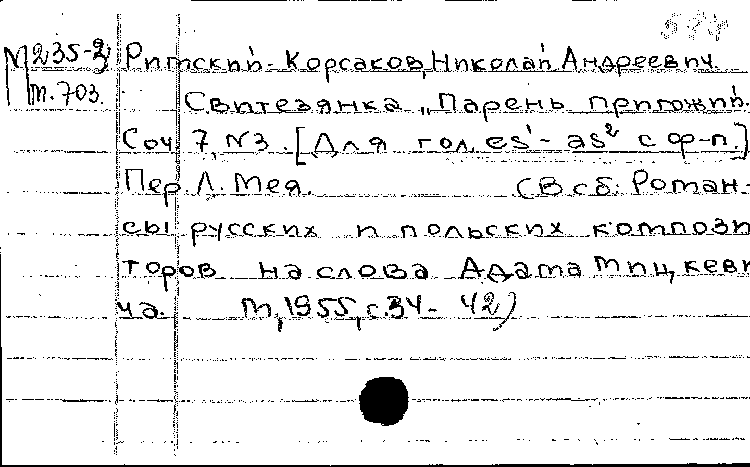 577
М 235-2 Римский-Корсаков, Николай Андреевич.
т. 703. Свитезянка „Парень пригожий.
Соч 7, №3. [Для гол. es¹- as² с ф-п.]
Пер. Л. Мея. (В сб: Роман-
сы русских и польских компози
торов на слова Адама Мицкеви
ча. М, 1955, с. 34- 42)